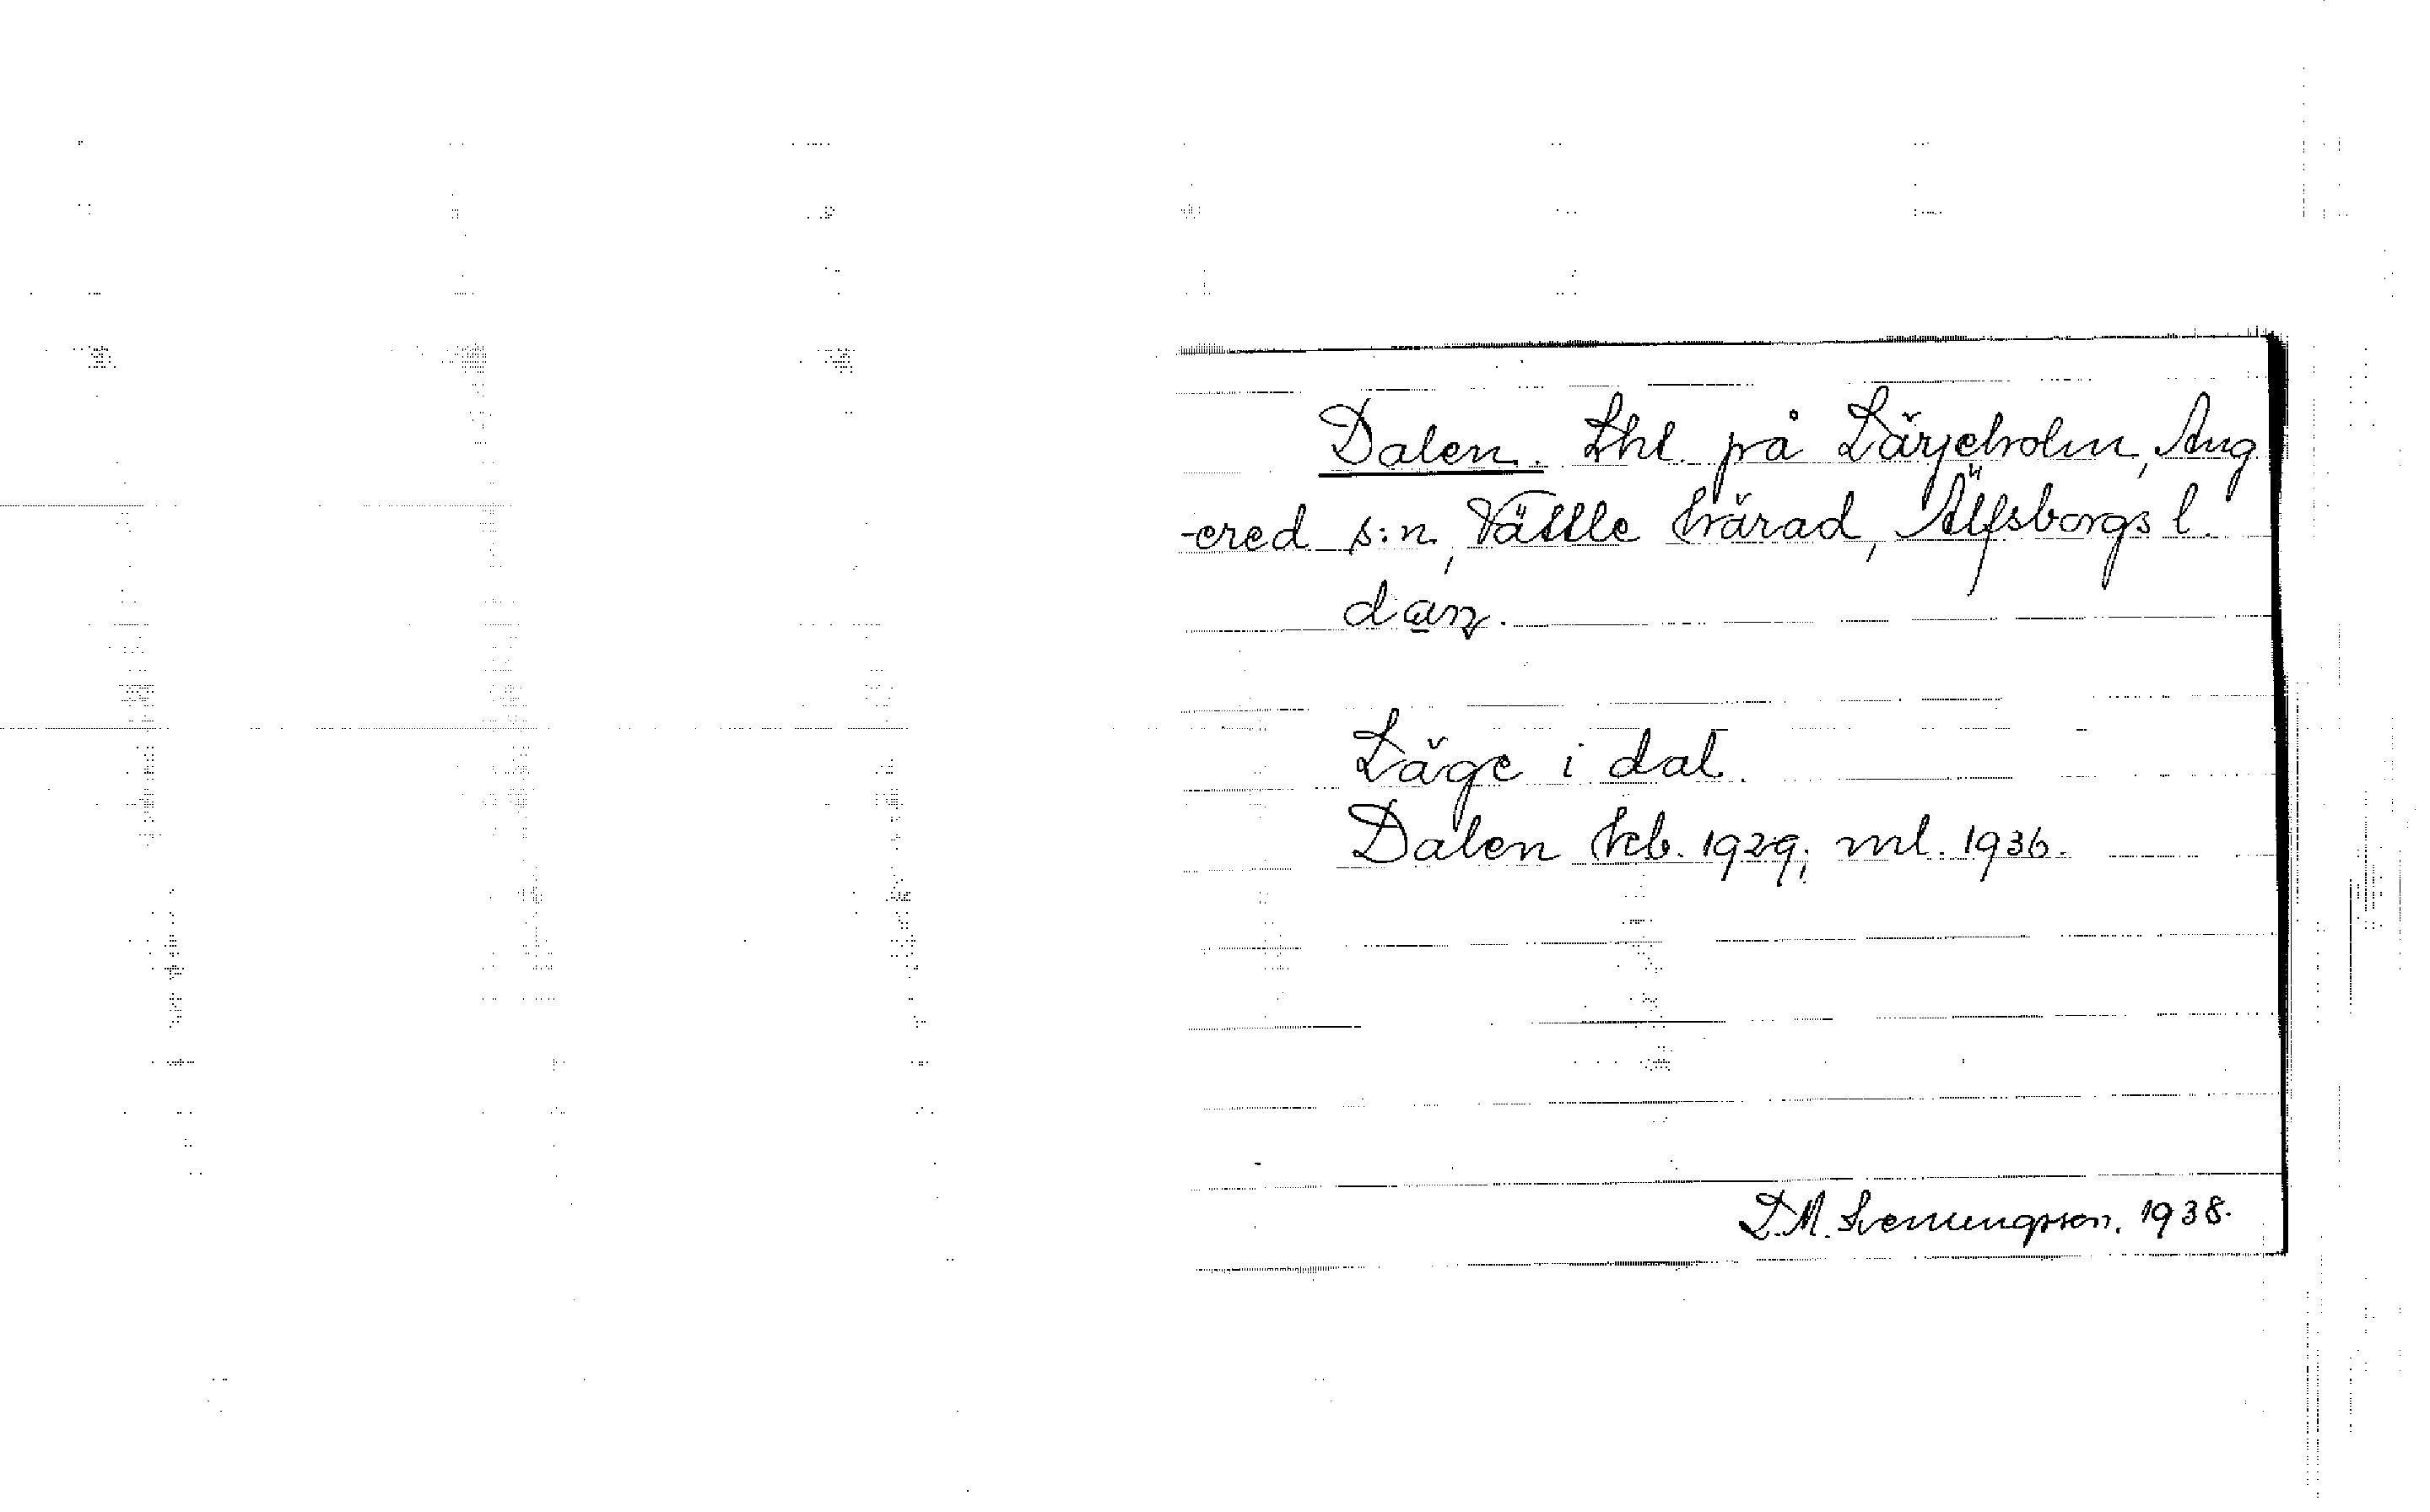 Dalen. Lht. på Lärjeholm, Ang
-ered s:n, Vättle härad, Älfsborgs l.
dan.
Läge i dal.
Dalen hcb. 1929; ml. 1936.
D.M. Svenungsson. 1938.